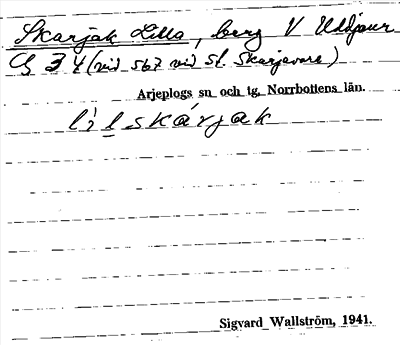 Skarjak Lilla, berg V Uddjaur
G 3 4 (vid 567 vid St. Skarjavare)
Arjeplogs sn och tg, Norrbottens län.
lìl skárjak
Sigvard Wallström, 1941.